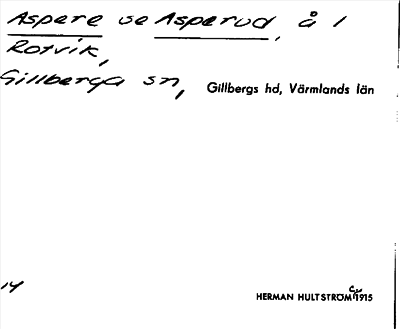 Aspere se Asperud, å i
Rotvik,
Gillberga sn, Gillbergs hd, Värmlands län
14
HERMAN HULTSTRÖM c. 1915